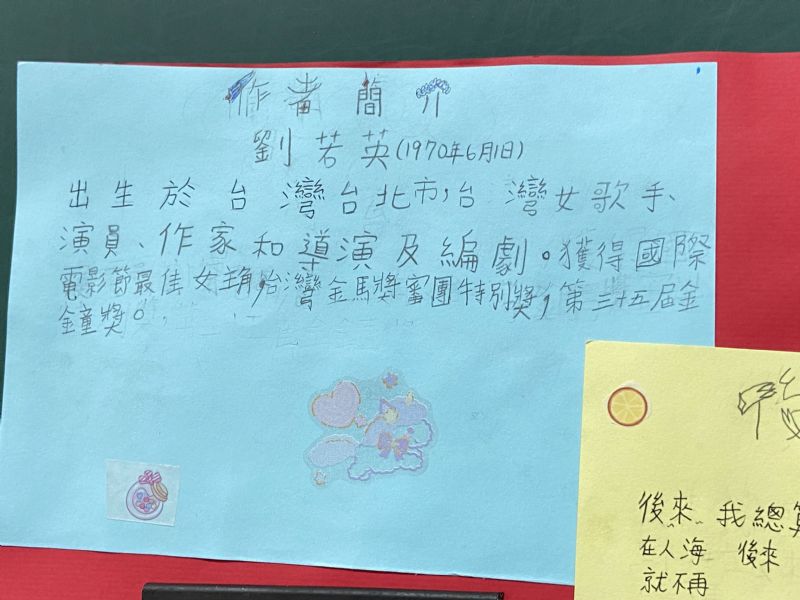 作者簡介
劉若英(1970年6月1日)
出生於台灣台北市,台灣女歌手、
演員、作家和導演及編劇。獲得國際
電影節最佳女主角,台灣金馬獎審團特別獎,第三十五屆金
鐘獎。
後來 我總算
在人海 後來
就不再